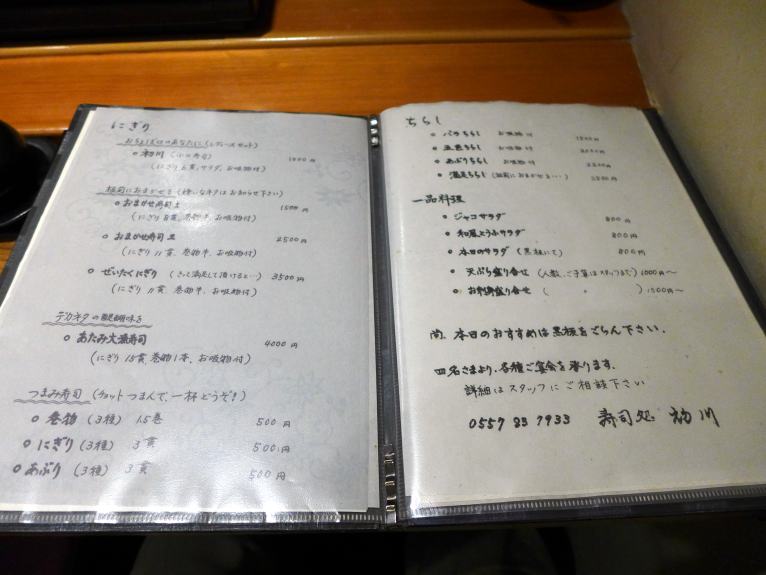 にぎり
おちょぼ口のあなたに (レディースセット)
初川 (小口寿司)
(にぎり 貫、サラダ、お吸物付)
板前におまかせを (嫌いなネタはお知らせ下さい)
おまかせ寿司 1500円
(にぎり 8貫、巻物半、お吸物付)
おまかせ寿司 2500円
(にぎり 11貫、巻物半、お吸物付)
ぜいたくにぎり (きっと満足して頂けると…) 3500円
(にぎり 11貫、巻物半、お吸物付)
デカネタの醍醐味を
あたみ大漁寿司 4000円
(にぎり 15貫、巻物1本、お吸物付)
つまみ寿司 (チョットつまんで、一杯どうぞ!)
巻物 (3種) 1.5巻 500円
にぎり (3種) 3貫 500円
あぶり (3種) 3貫 500円
ちらし
バラちらし お吸物付
五色ちらし お吸物付
あぶりちらし お吸物付
満足ちらし (板前におまかせ…)
一品料理
ジャコサラダ 800円
和風とうふサラダ 800円
本日のサラダ (黒板にて) 800円
天ぷら盛り合せ (人数、ご予算はスタッフまで) 1000円〜
お刺身盛り合せ ( 〃 ) 1500円〜
尚、本日のおすすめは黒板をごらん下さい.
四名さまより、各種ご宴会を承ります.
詳細はスタッフにご相談下さい
0557 83 7933 寿司処 初川